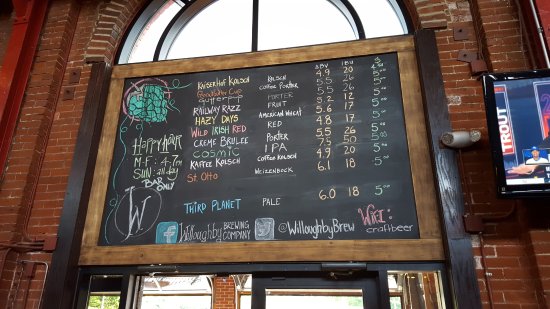 ABV IBU $
Kaiserhof Kolsch Kolsch 4.9 20 5.00
Peanutbutter Cup Coffee Porter 5.5 26 5.00
Gutterball PORTER 5.5 26 5.00
RAILWAY RAZZ FRUIT 5.2 12 5.00
HAZY DAYS AMERICAN WHEAT 5.6 17 5.00
WILD IRISH RED RED 4.8 17 5.00
CREME BRULEE PORTER 5.5 26 5.00
COSMIC IPA 7.5 50 5.00
KAFFEE KOLSCH COFFEE KOLSCH 4.9 20 5.00
St. Otto WEIZENBOCK 6.1 18 5.00
THIRD PLANET PALE 6.0 18 5.00
Happy hour
M-F: 4-7pm
SUN: all day
BAR ONLY
W
f Willoughby BREWING COMPANY @WilloughbyBrew Wike: craftbeer
TROUT